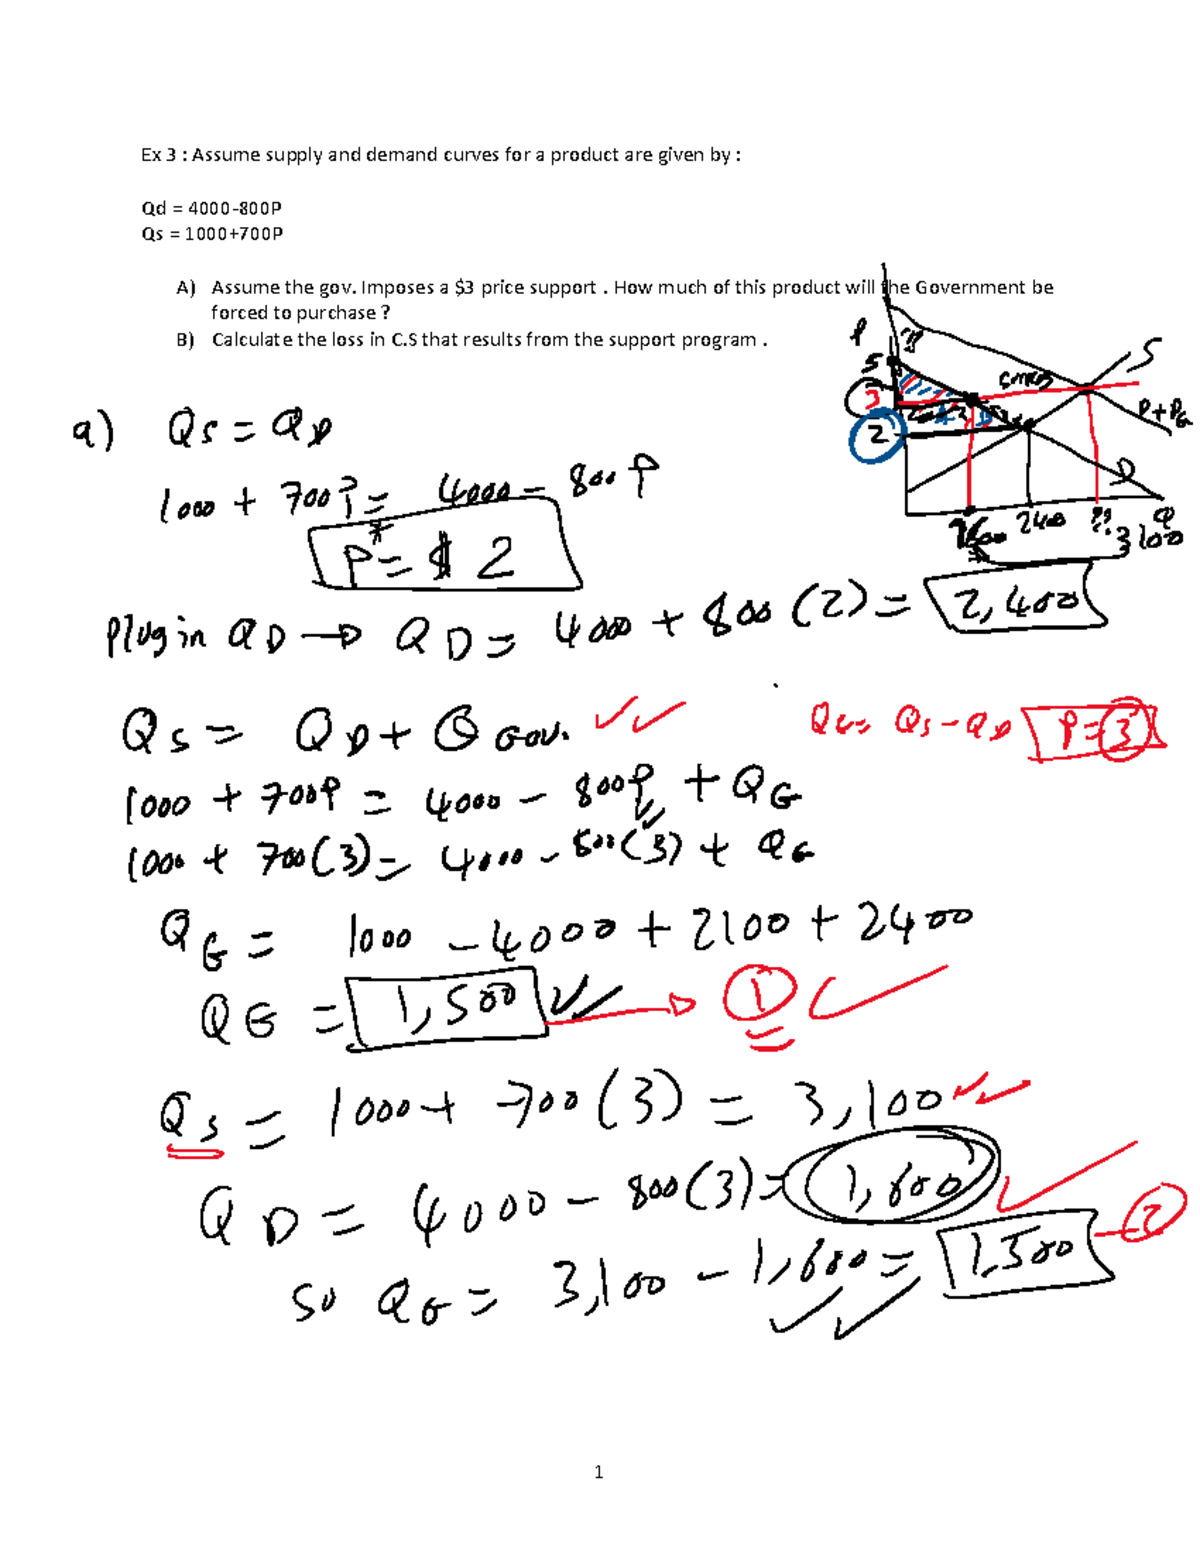 Ex 3 : Assume supply and demand curves for a product are given by :
Qd = 4000-800P
Qs = 1000+700P
A) Assume the gov. Imposes a $3 price support . How much of this product will the Government be
forced to purchase ?
B) Calculate the loss in C.S that results from the support program .
P
S
5
3
2
P+PG
D
2400
??
Q
3100
a) QS = QD
1000 + 700P = 4000 - 800P
P* = $ 2
Plug in QD → QD = 4000 + 800 (2) = 2,400
QS = QD + Q Gov.
QG = QS - QD P = 3
1000 + 700P = 4000 - 800P + QG
1000 + 700(3) = 4000 - 800(3) + QG
QG = 1000 - 4000 + 2100 + 2400
QG = 1,500 → 1
QS = 1000 + 700(3) = 3,100
QD = 4000 - 800(3) = 1,600
so QG = 3,100 - 1,600 = 1,500 - 2
1